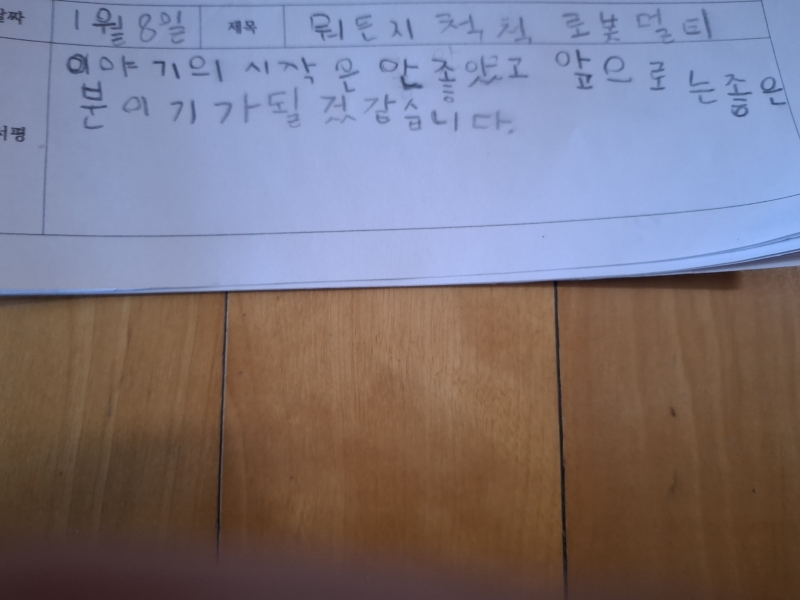 날짜 1월 8일 제목 뭐든지 척척 로봇 멀티
이야기의 시작은 안 좋았고 앞으로는 좋은
서평
분이기가될 겄 갑십니다.